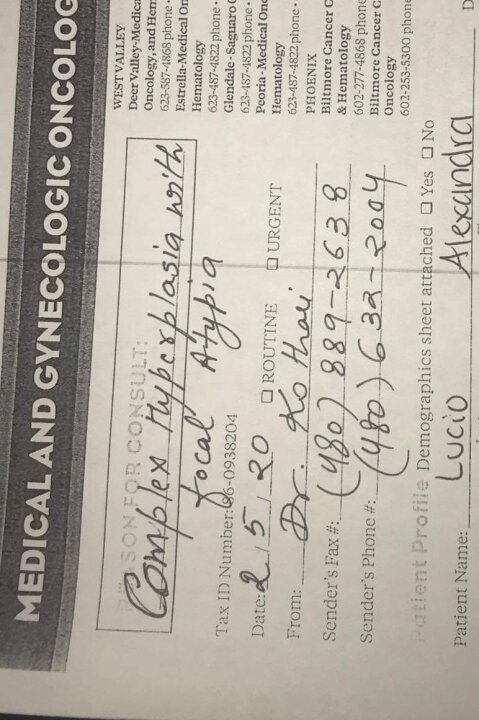 MEDICAL AND GYNECOLOGIC ONCOLOG
REASON FOR CONSULT:
Complex Hyperplasia with
focal Atypia
Tax ID Number: 86-0938204
Date: 2/5/20 ☐ ROUTINE ☐ URGENT
From: Dr. Kothari
Sender's Fax #: (480) 889-2638
Sender's Phone #: (480) 632-2004
Patient Profile Demographics sheet attached ☐ Yes ☐ No
Patient Name: Lucio Alexandra D
WEST VALLEY
Deer Valley-Medica
Oncology, and Hem
623-587-4868 phone •
Estrella-Medical On
Hematology
623-487-4822 phone •
Glendale - Saguaro C
623-487-4822 phone •
Peoria - Medical Onc
Hematology
623-487-4822 phone •
PHOENIX
Biltmore Cancer C
& Hematology
602-277-4868 phone
Biltmore Cancer C
Oncology
602-253-5300 phone